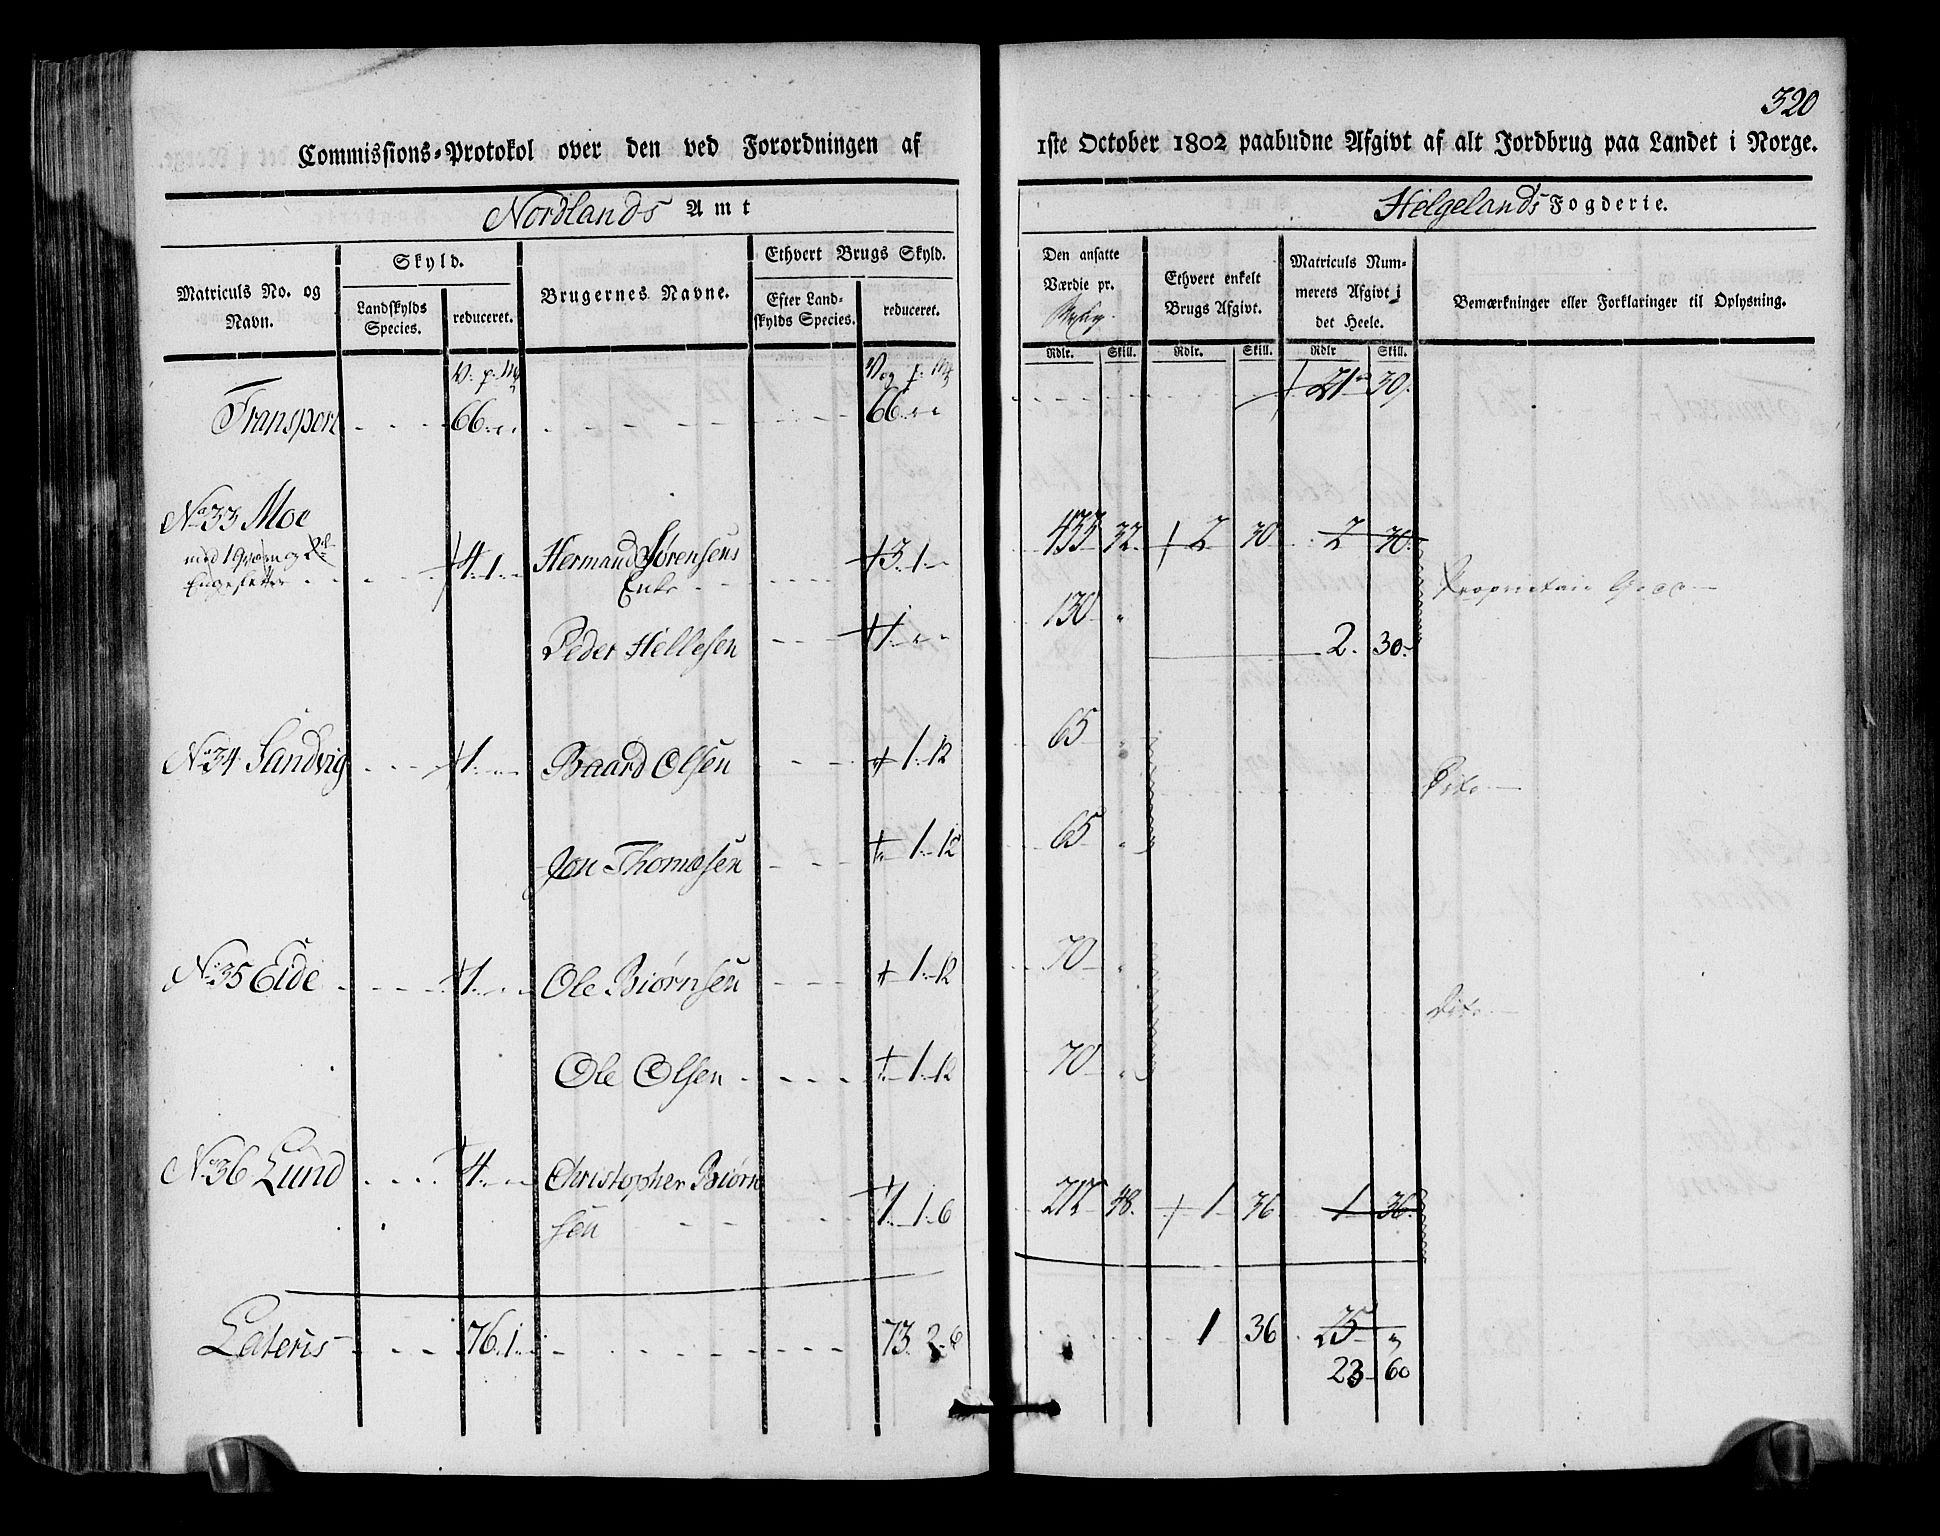 320
Commissions-Protokol over den ved Forordningen af 1ste October 1802 paabudne Afgivt af alt Jordbrug paa Landet i Norge.
Nordlands Amt
Helgelands Fogderie.
Matriculs No. og Navn.
Skyld.
Landskylds Species.
reduceret.
Brugernes Navne.
Ethvert Brugs Skyld.
Efter Landskylds Species.
reduceret.
Den ansatte Værdie pr.
Ethvert enkelt Brugs Afgivt.
Matriculs Nummerets Afgivt i det Heele.
Bemærkninger eller Forklaringer til Oplysning.
Rdlr. Skill. Rdlr. Skill. Rdlr Skill.
Transport 66 66 21 30
No 33 Moe
4. 1 Hermand Sørensens Enke 3. 1 433 32 2 30 2 30 Proprietair
Peder Hellesen 1 130 2. 30
No 34 Sandvig 1 Baard Olsen 1. 12 65 Dito
Jon Thomesen 1. 12 65
No 35 Eide 1 Ole Biørnsen 1. 12 70 Dito
Ole Olsen 1. 12 70
No 36 Lund 4 Christopher Biørnsen 1. 1. 6 212 48 1 36 1 36
Lateris 76. 1 73. 2. 6 1 36 25
23 60